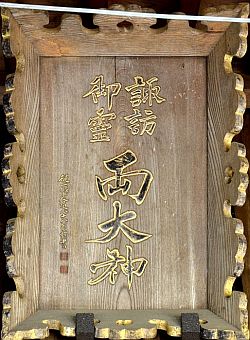 諏訪
御靈
両大神